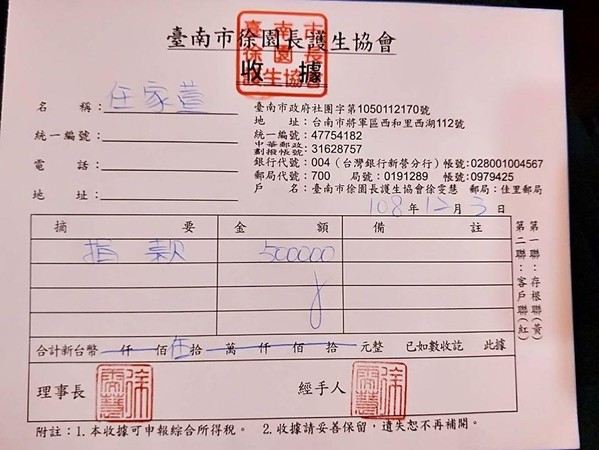 臺南市徐園長護生協會
收 據
臺南市
徐園長
護生協會
名 稱：任家萱
統一編號：
電 話：
地 址：
臺南市政府社團字第1050112170號
地 址：台南市將軍區西和里西湖112號
統一編號：47754182
中華郵政劃撥帳號：31628757
銀行代號：004（台灣銀行新營分行）帳號：028001004567
郵局代號：700 局號：0191289 帳號：0979425
戶 名：臺南市徐園長護生協會徐雯慧 郵局：佳里郵局
108年12月3日
摘 要 金 額 備 註
捐款 500000
第一聯：存根聯（黃）
第二聯：客戶聯（紅）
合計新台幣 仟 佰 伍拾 萬 仟 佰 拾 元整 已如數收訖 此據
理事長 徐雯慧 經手人 徐雯慧
附註：1.本收據可申報綜合所得稅。 2.收據請妥善保留，遺失恕不再補開。